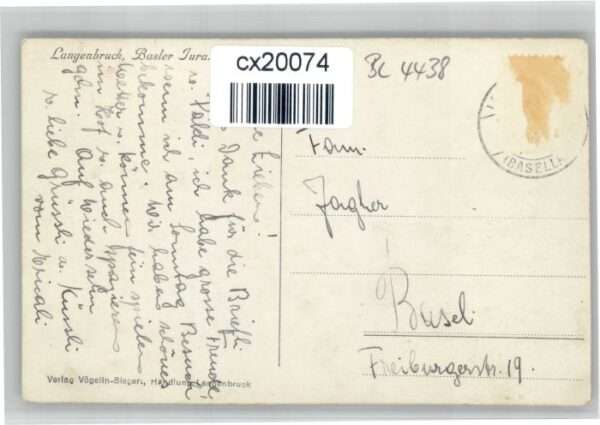 Langenbruck, Basler Jura.
cx20074
BL 4438
(BASELL
Liebe
Dank für die Briefli
u. Käldi, ich habe grosse Freude,
wenn ich am Sonntag Besuch
bekomme. Wir haben schönes
Wetter u. können fein spielen
im Hof u. auch spazieren
gehn. Auf Wiedersehn
u. liebe Grüssli u. Küssli
vom
Fam.
Jagher
Basel
Freiburgerstr. 19.
Verlag Vögelin-Bieger, Handlung Langenbruck